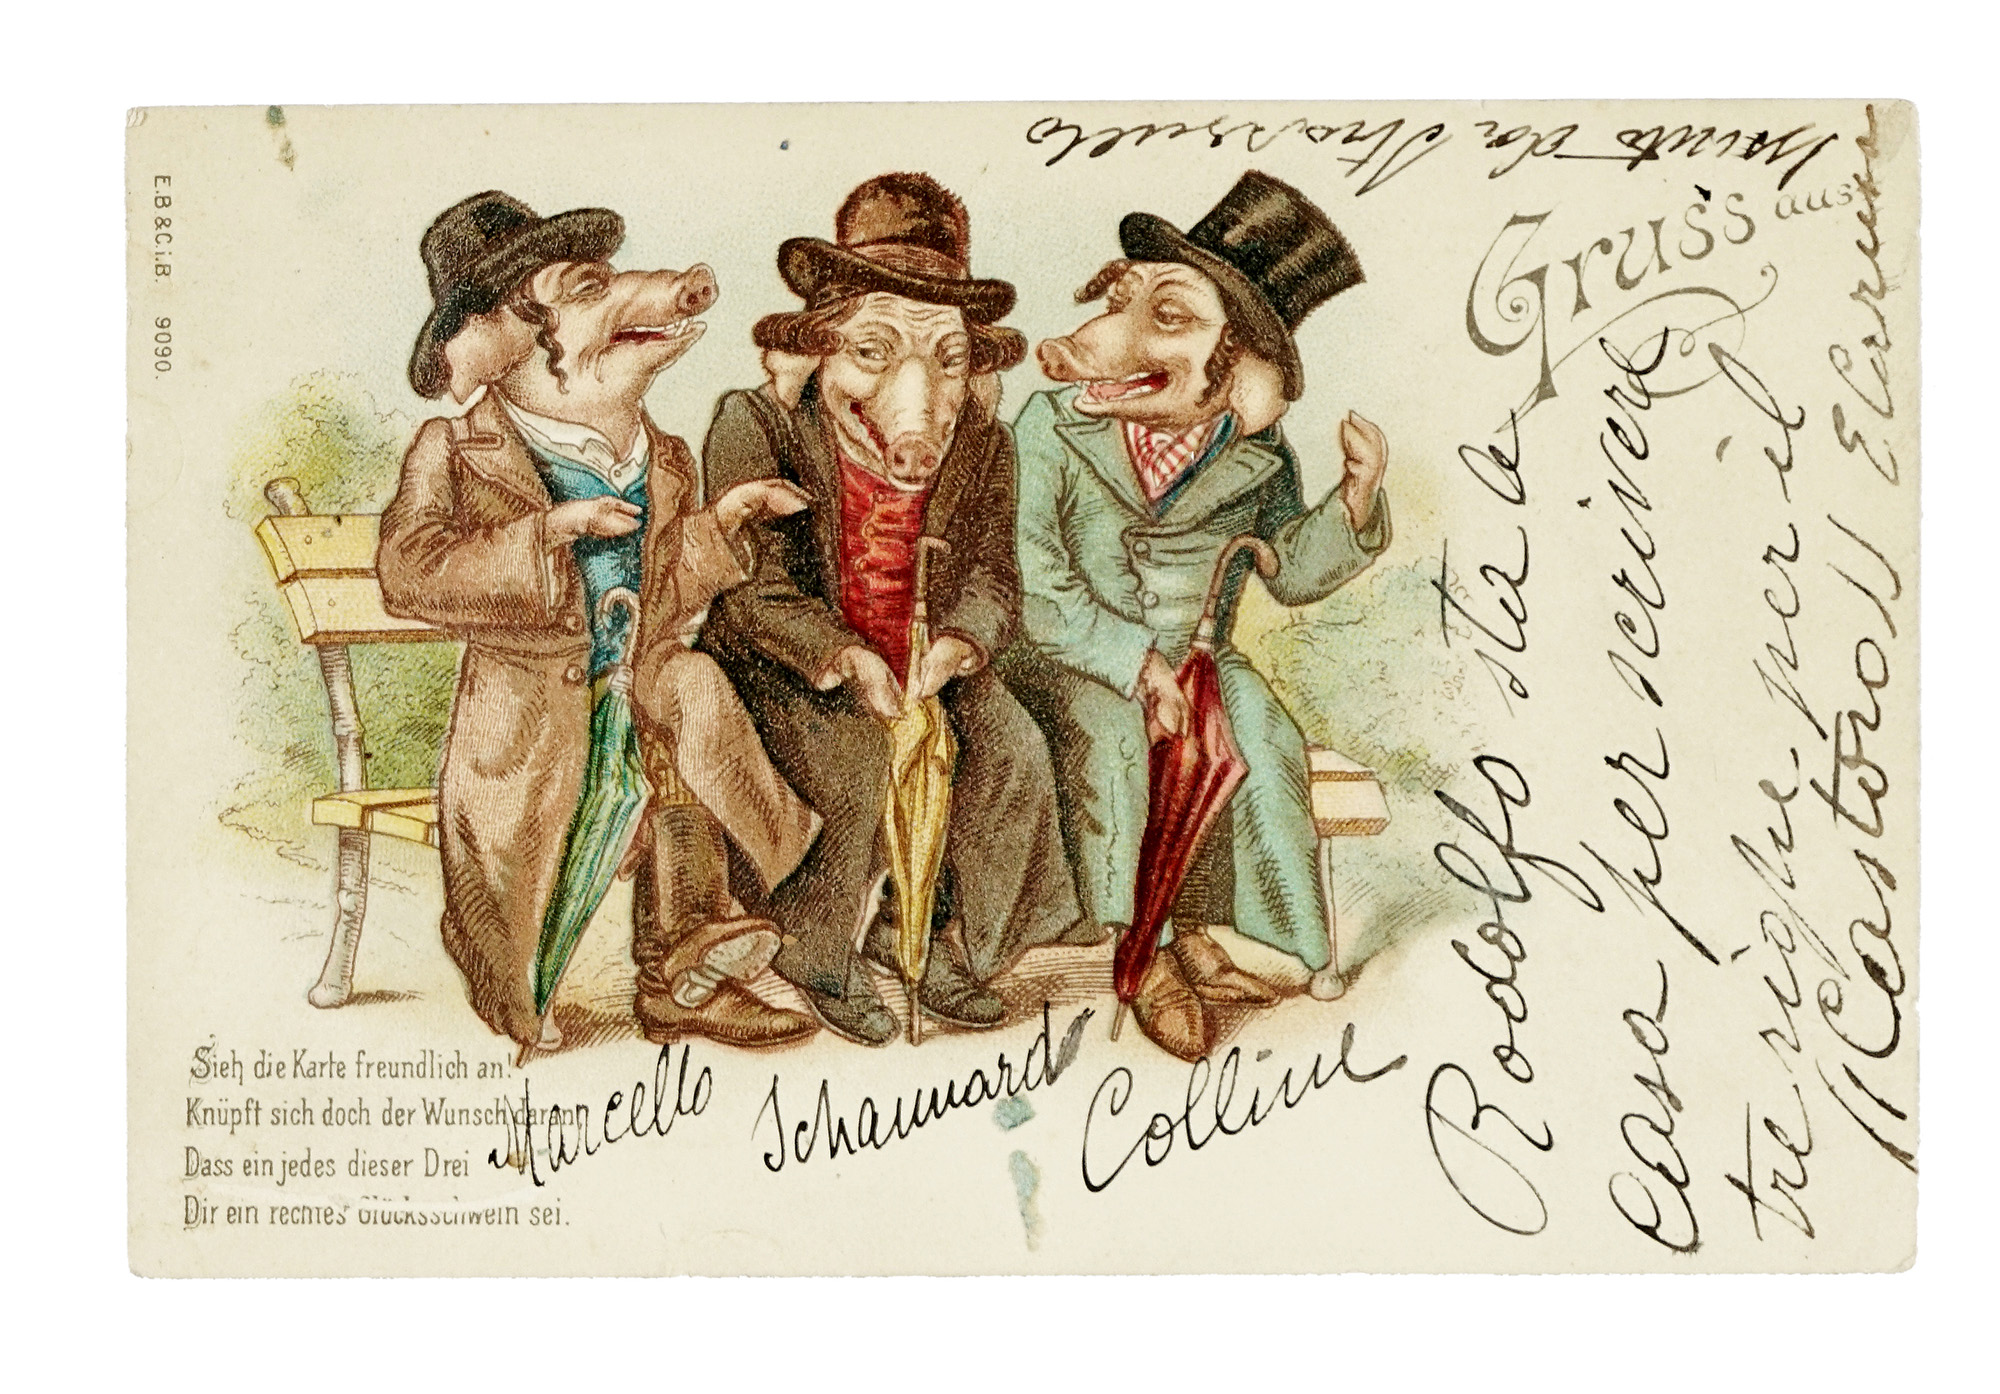 E.B.&C.i.B. 9090.
Gruss aus
Sieh die Karte freundlich an!
Knüpft sich doch der Wunsch daran
Dass ein jedes dieser Drei
Dir ein rechtes Glücksschwein sei.
Marcello
Schaunnard
Colline
Rodolfo sta a
casa per scrivere
tre righe per il
"Castoro"